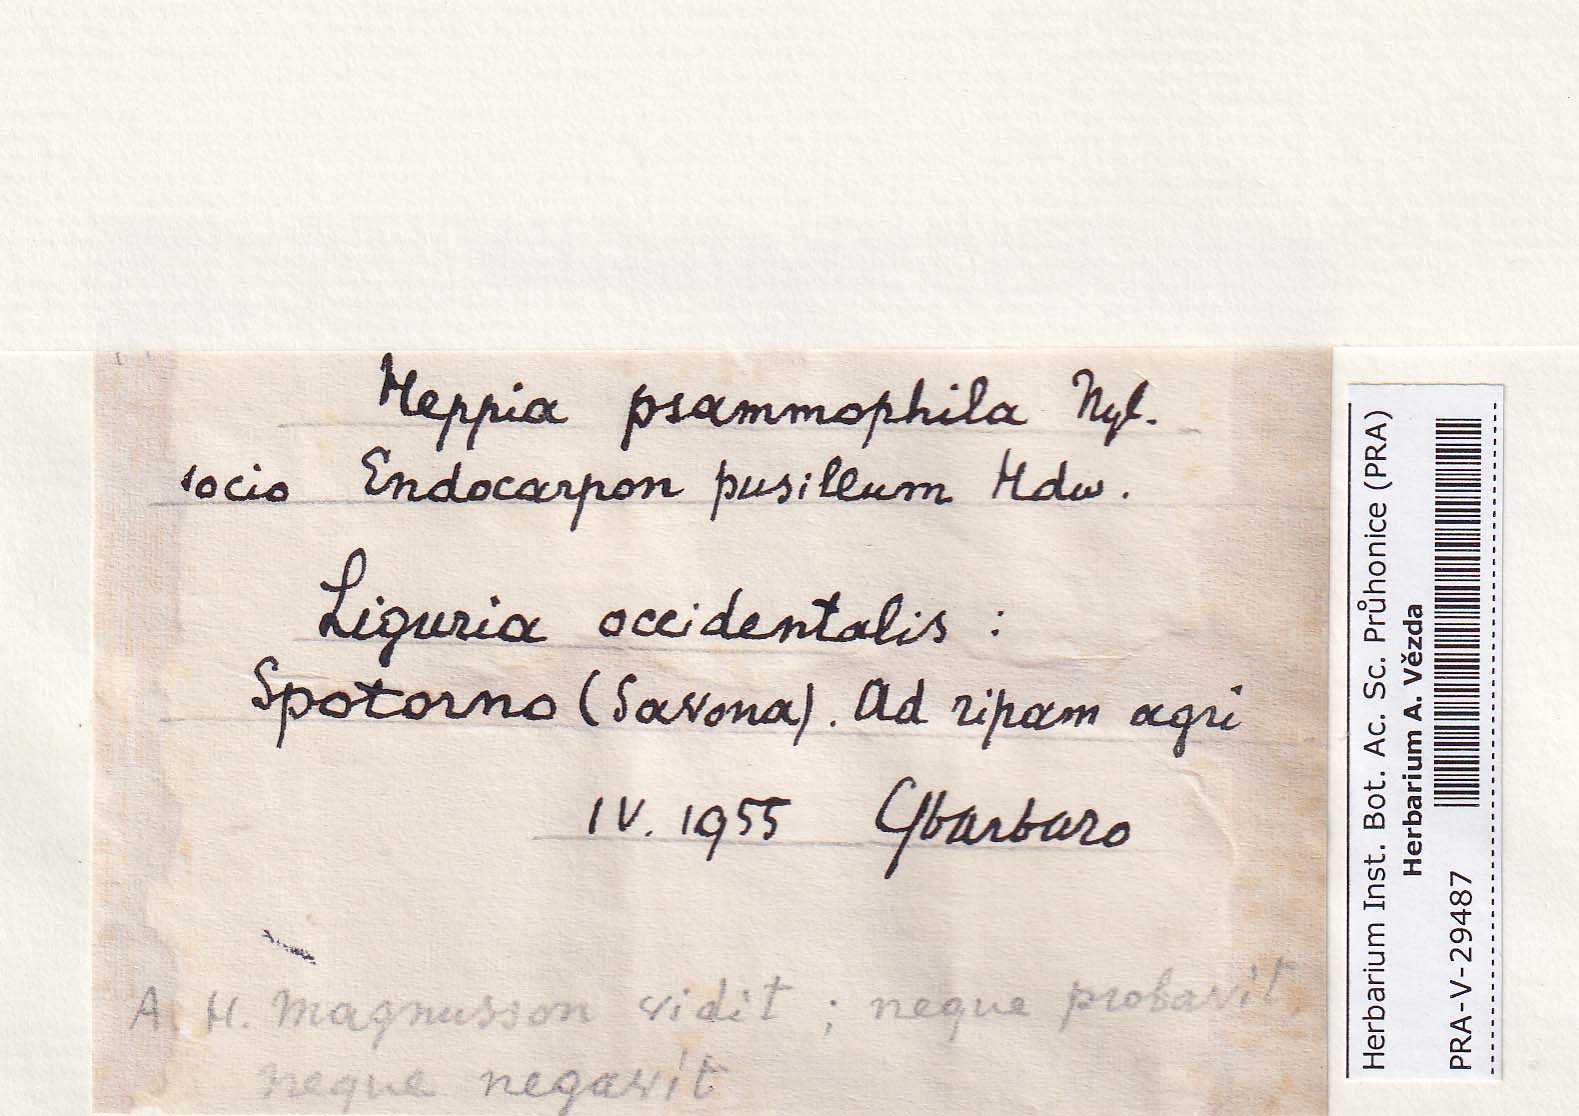 Heppia psammophila Nyl.
socio Endocarpon pusillum Hdw.
Liguria occidentalis :
Spotorno (Savona). Ad ripam agri
IV. 1955 Gbarbaro
A. H. Magnusson vidit ; neque probavit
neque negavit
Herbarium Inst. Bot. Ac. Sc. Průhonice (PRA)
Herbarium A. Vězda
PRA-V-29487